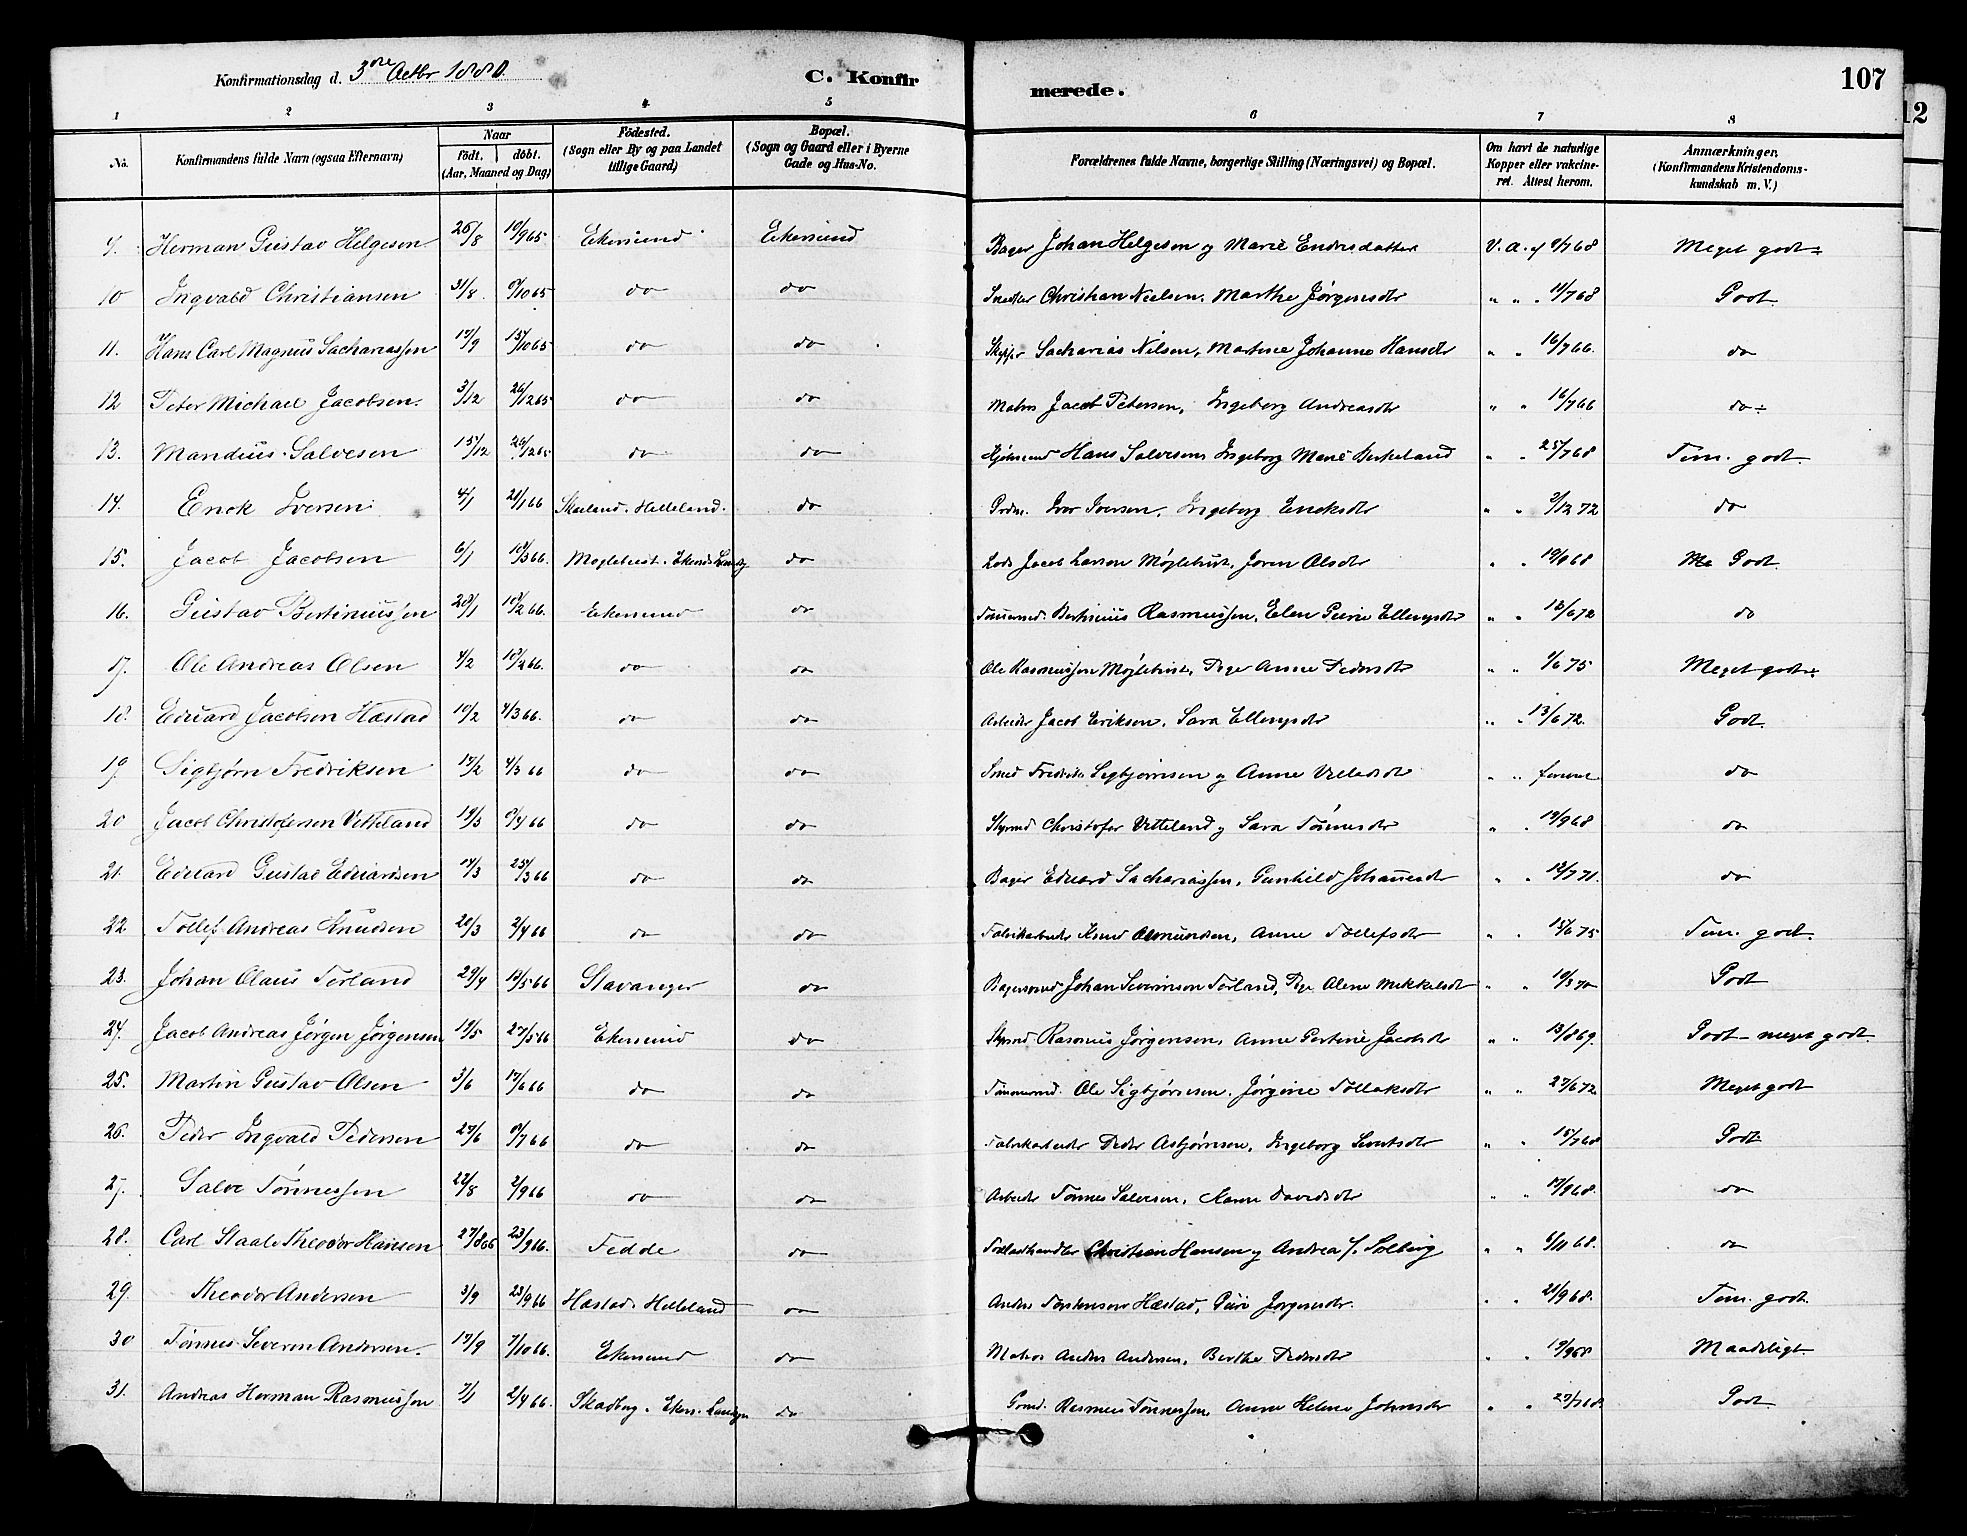 Konfirmationsdag d. 3die Octbr 1880.
C. Konfirmerede.
107
12
1 2 3 4 5 6 7 8
No. Konfirmandens fulde Navn (ogsaa Efternavn) Naar födt. döbt. (Aar, Maaned og Dag) Födested. (Sogn eller By og paa Landet tillige Gaard) Bopæl. (Sogn og Gaard eller i Byerne Gade og Hus-No. Forældrenes fulde Navne, borgerlige Stilling (Næringsvei) og Bopæl. Om havt de naturlige Kopper eller vakcineret. Attest herom. Anmærkninger, (Konfirmandens Kristendomskundskab m. V.)
9. Herman Gustav Helgesen 26/8 10/9 65 Ekersund Ekersund Bager Johan Helgesen og Marie Endresdatter V. A. af 9/7 68 Meget godt
10 Ingvald Christiansen 31/8 8/10 65 do do Snedker Christian Nielsen, Marthe Jørgensdtr " " 11/7 68 Godt
11. Hans Carl Magnus Sachariassen 17/9 15/10 65 do do Skipper Sacharias Nilsen, Martine Johanne Hansdtr " " 16/7 66. do
12 Peter Michael Jacobsen. 3/12 26/12 65 do do Matros Jacob Petersen, Ingeborg Andreasdtr " " 16/7 66 do
13. Mandius Salvesen 15/12 26/12 65 do do Hans Salvesen, Ingeborg Marie Birkeland " " 25/7 68 Tem. godt.
14. Erick Iversen 4/1 21/1 66 Skarland. Helleland. do Iver Iversen, Ingeborg Ericksdtr " " 2/12 72 do
15. Jacob Jacobsen 6/1 18/3 66. Møglehust. Ekersds Landsg do Lods Jacob Larsen Møglehust, Joren Olsdtr " " 19/9 68 Godt
16. Gustav Bertinussen 28/1 18/2 66. Ekersund do Bertinius Rasmussen, Elen Gurie Ellingsdtr " " 13/6 72 do
17. Ole Andreas Olsen 4/2 18/2 66. do do Ole Rasmussen Møglehust, Pige Anne Pedersdtr " " 1/6 75 Meget godt
18. Eduard Jacobsen Hæstad 10/2 4/3 66. do do Arbeider Jacob Eriksen, Sara Ellingsdtr " " 13/6 72. Godt.
19 Sigbjørn Fredriksen 17/2 4/3 66 do do Smed Fredrik Sigbjørnsen og Anne " " do
20 Jacob Christofersen Vetteland 19/3 8/4 66 do do Styrmd Christofer Vetteland og Sara Tønnesdtr " " 19/9 68 do
21. Eduard Gustav Eduardsen 14/3 25/3 66 do do Bager Eduard Sachariassen, Gunhild Johannesdtr " " 12/7 71. do
22. Tollef Andreas Knudsen 20/3 2/4 66 do do Fabrikarbeider Knud Asmundsen, Anne Tollefsdtr " " 15/6 75 Tem. godt.
23. Johan Olaus Torland 29/4 13/5 66 Stavanger do Bagersvend Johan Severinson Torland, Pige Alene Mikkelsdtr " " 10/3 70 Godt
24. Jacob Andreas Jørgen Jørgensen 19/5 27/5 66 Ekersund do Styrmd. Rasmus Jørgensen, Anne Gurtine Jacobsdtr " " 13/8 69. Godt - meget godt.
25. Martin Gustav Olsen 3/6 17/6 66 do do Tømmermd. Ole Sigbjørnsen, Jørgine Tollaksdtr " " 27/6 72 Meget godt
26. Peder Ingvald Pedersen 27/6 8/7 66 do do Fabrikarbeider Peder Asbjørnsen, Ingeborg Sivertsdtr " " 15/7 68 Godt
27. Salve Tønnessen 22/8 2/9 66 do do Arbeider Tønnes Salvesen, Karen Davidsdtr " " 17/9 68. do
28. Carl Staale Theodor Hansen 27/8 66 23/9 66. Fedde do Christian Hansen og Andrea f. Solberg " " 6/11 68. do
29. Theodor Andersen 3/9 23/9 66 Hæstad. Helleland do Anders Torstensen Hæstad, Guri Jørgensdtr. " " 21/9 68. Tem. godt.
30 Tønnes Severin Andersen. 17/9 7/10 66. Ekersund do Matros Anders Andersen, Berthe Pedersdtr " " 19/9 68 Maadeligt.
31. Andreas Herman Rasmussen 7/1 2/4 66. Skadbrg. Ekers. Landsogn do Grmd. Rasmus Tønnessen, Anne Helene Johnsdtr " " 27/7 68. Godt.